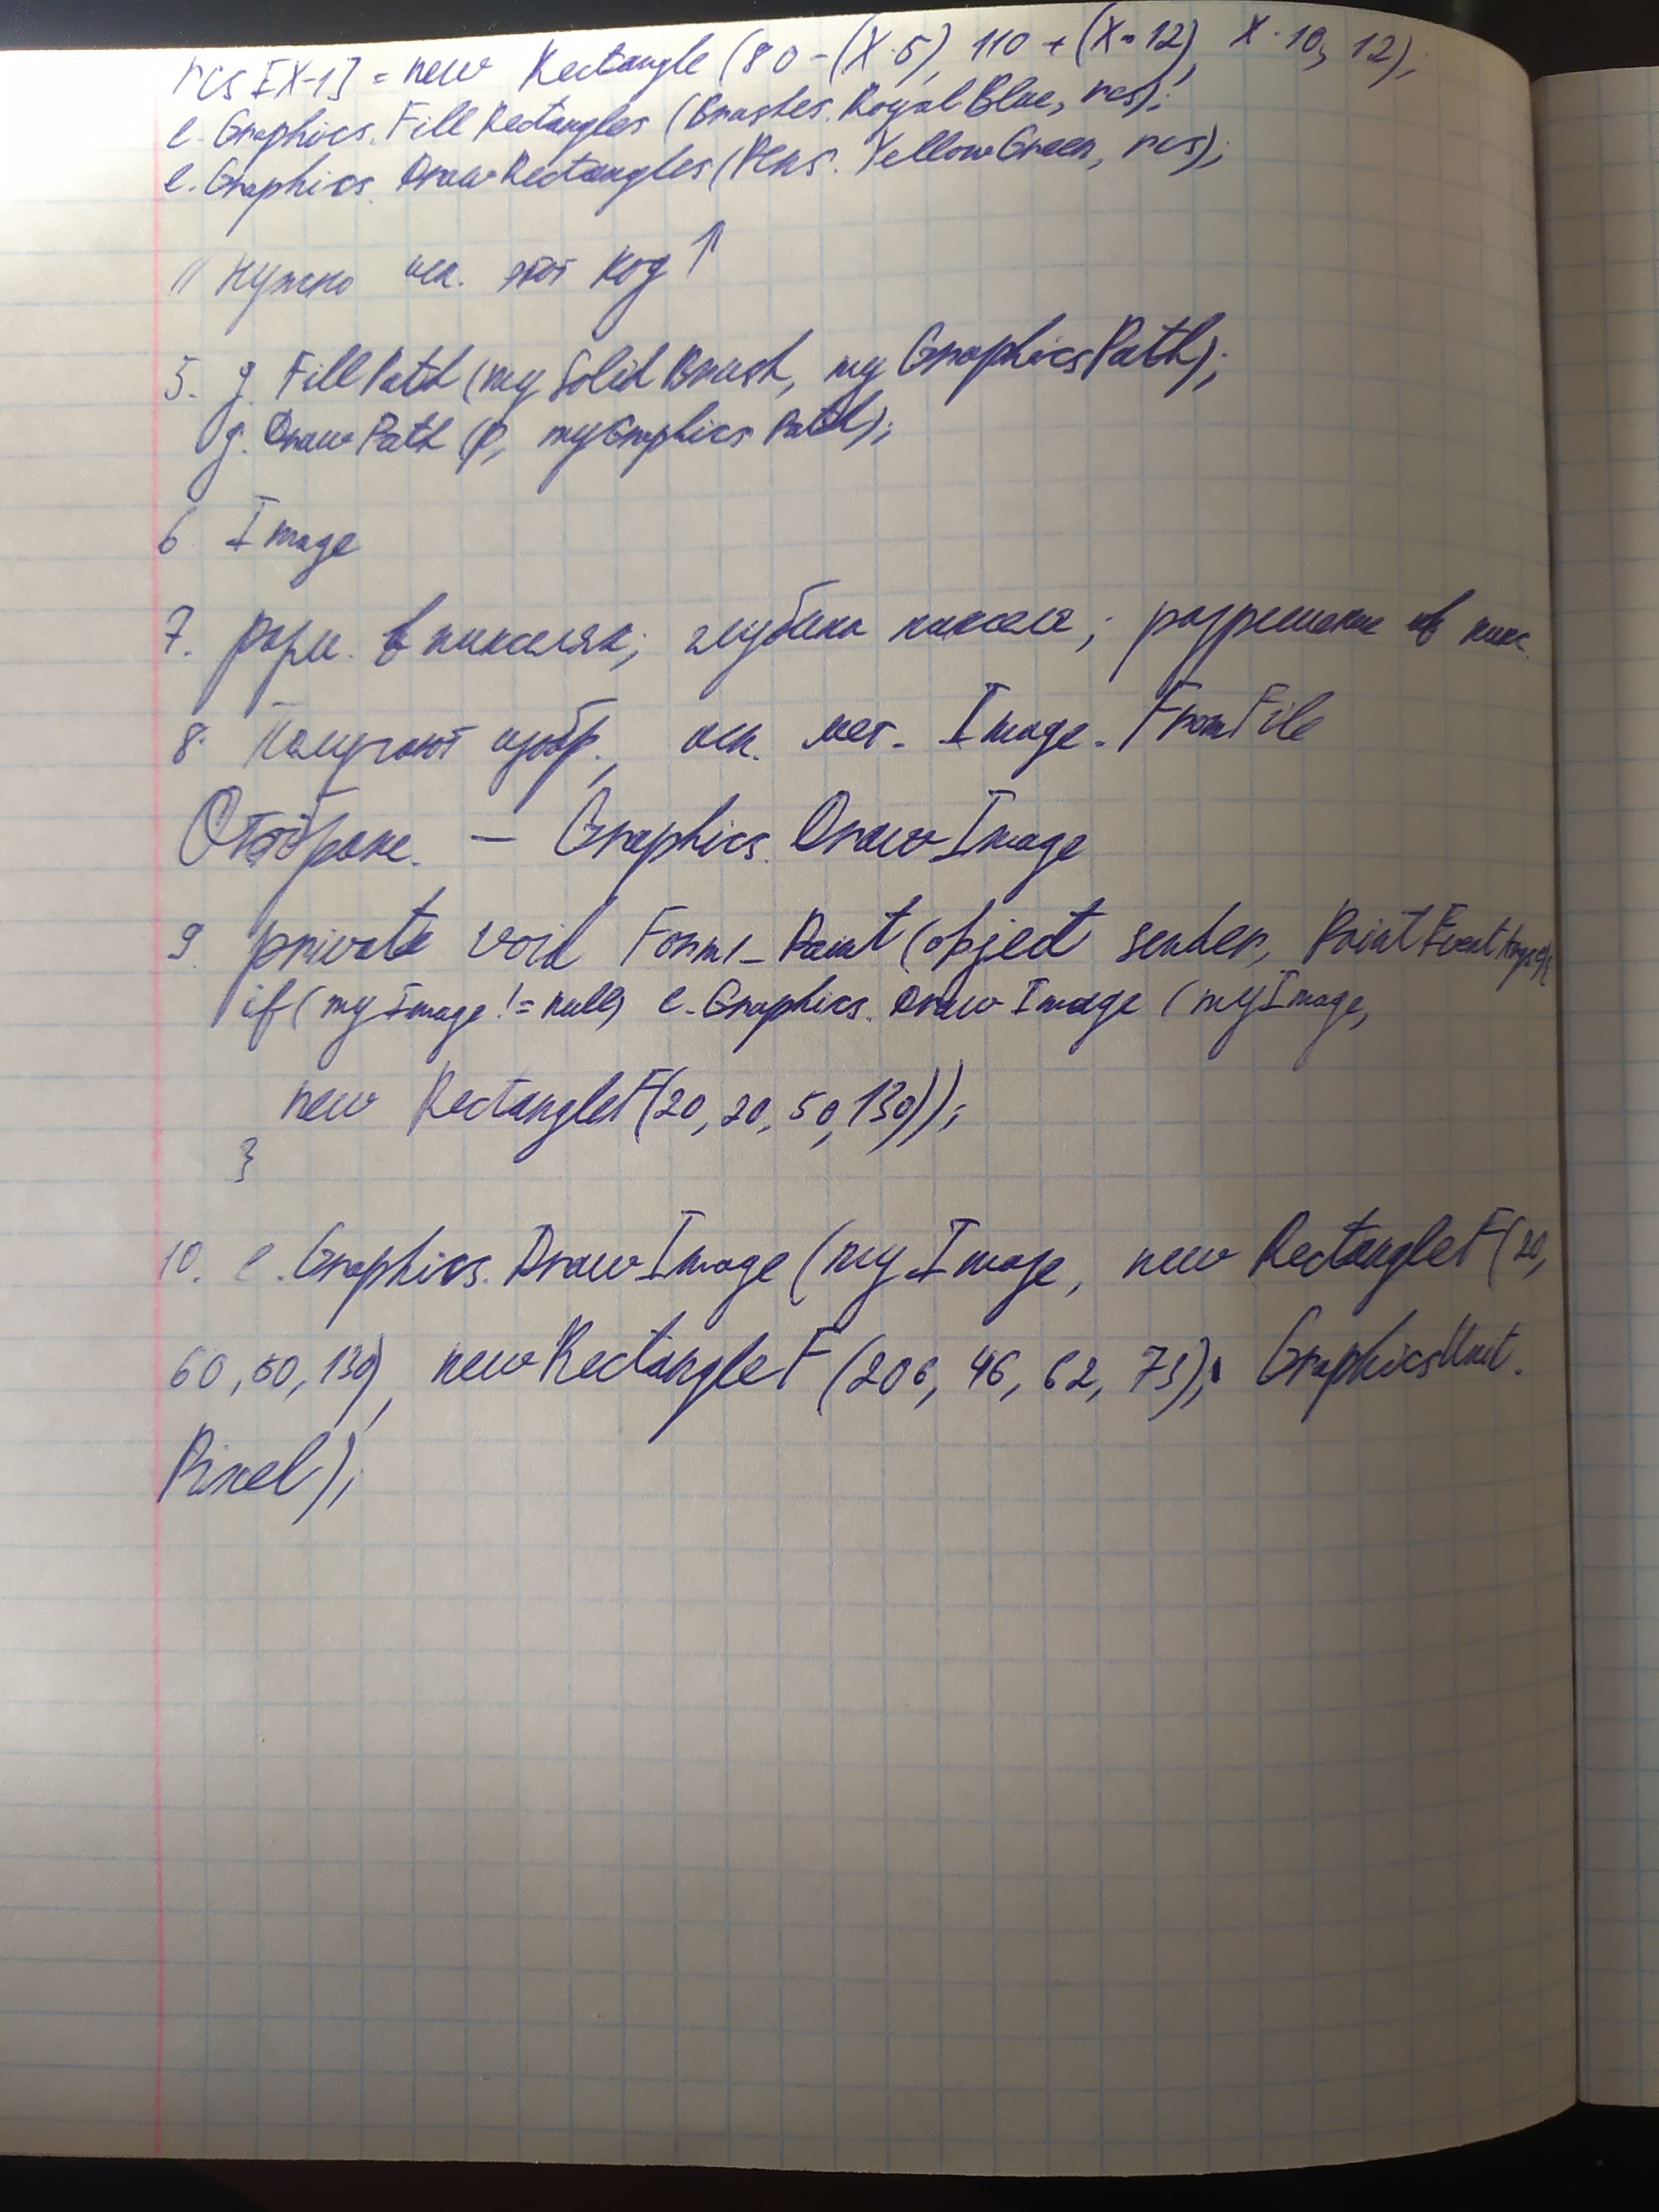 rcs[X-1] = new Rectangle (80 - (X·5), 110 + (X·12), X·10, 12);
e.Graphics.FillRectangles (Brushes.RoyalBlue, rcs);
e.Graphics.DrawRectangles (Pens.YellowGreen, rcs);
// Нужно исп. этот код ↑
5. g.FillPath (mySolidBrush, myGraphicsPath);
g.DrawPath (p, myGraphicsPath);
6 Image
7. разм. в пикселях; глубина пикселя; разрешение в пикс.
8. Получают изобр., исп. мет. Image.FromFile
Отображ. — Graphics.DrawImage
9. private void Form1_Paint (object sender, PaintEventArgs e){
if (myImage != null) e.Graphics.DrawImage (myImage,
new RectangleF(20, 20, 50, 130));
}
10. e.Graphics.DrawImage (myImage, new RectangleF (20,
60, 50, 130), new RectangleF (206, 46, 62, 73), GraphicsUnit.
Pixel);